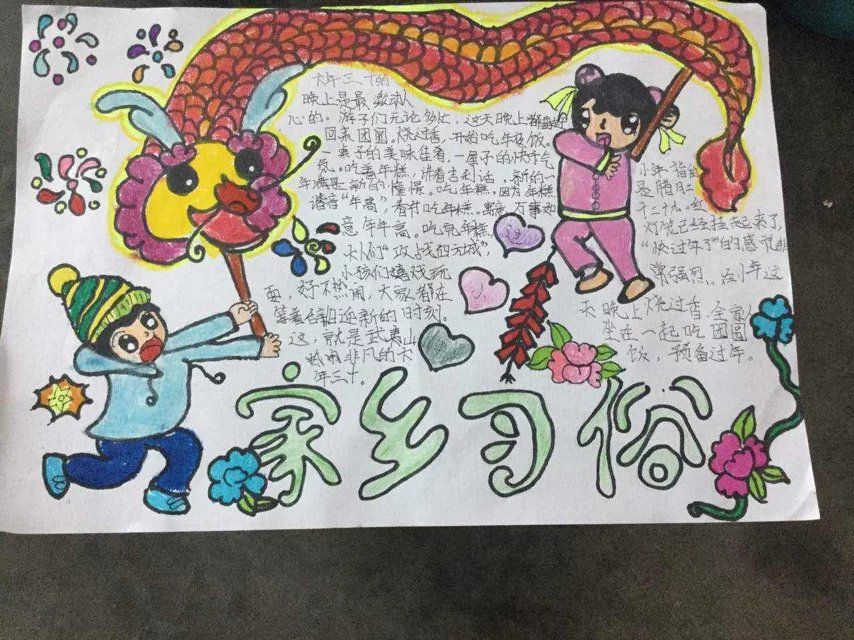 大年三十的
晚上是最激动人
心的。游子们无论多忙,这天晚上都
回来团圆。烧过香,开始吃年夜饭。
一桌子的美味佳肴,一屋子的快乐气
氛。吃着年糕,讲着吉利话,新的一
年满是新的憧憬。吃年糕,因为年糕
谐音“年高”,
意年年高。吃完年糕,
大人们“攻战四元城”,
小孩们嬉戏玩
耍,好不热闹,大家都在
等着各自迎新的时刻。
这,就是武夷山
非凡的大
年三十。
小年指的
是腊月
二十九。
灯笼已经挂起来了,
“快过年了”的感觉非
常强烈。在小年这
天晚上烧过香,全家人
坐在一起吃团圆
饭,预备过年。
家乡习俗